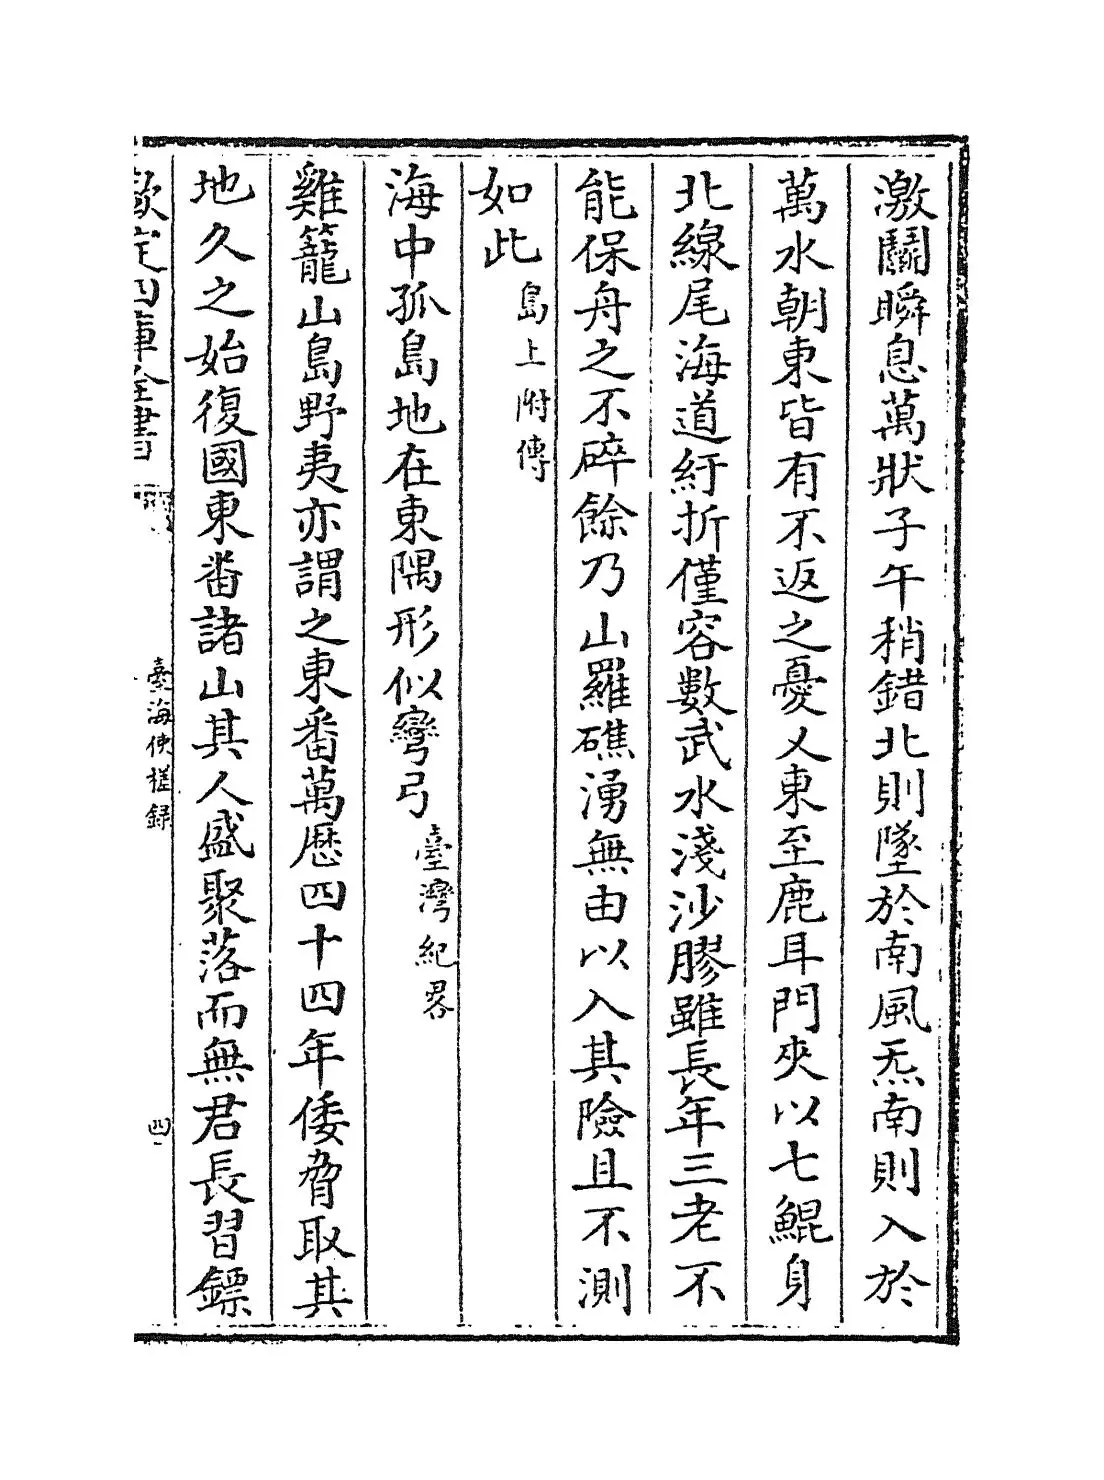 激鬭瞬息萬狀子午稍錯北則墜於南風炁南則入於
萬水朝東皆有不返之憂乂東至鹿耳門夾以七鯤身
北線尾海道紆折僅容數武水淺沙膠雖長年三老不
能保舟之不碎餘乃山羅礁湧無由以入其險且不測
如此島上附傳
海中孤島地在東隅形似彎弓臺灣紀畧
雞籠山島野夷亦謂之東番萬厯四十四年倭脅取其
地久之始復國東畨諸山其人盛聚落而無君長習鏢
欽定四庫全書
臺海使槎録
四